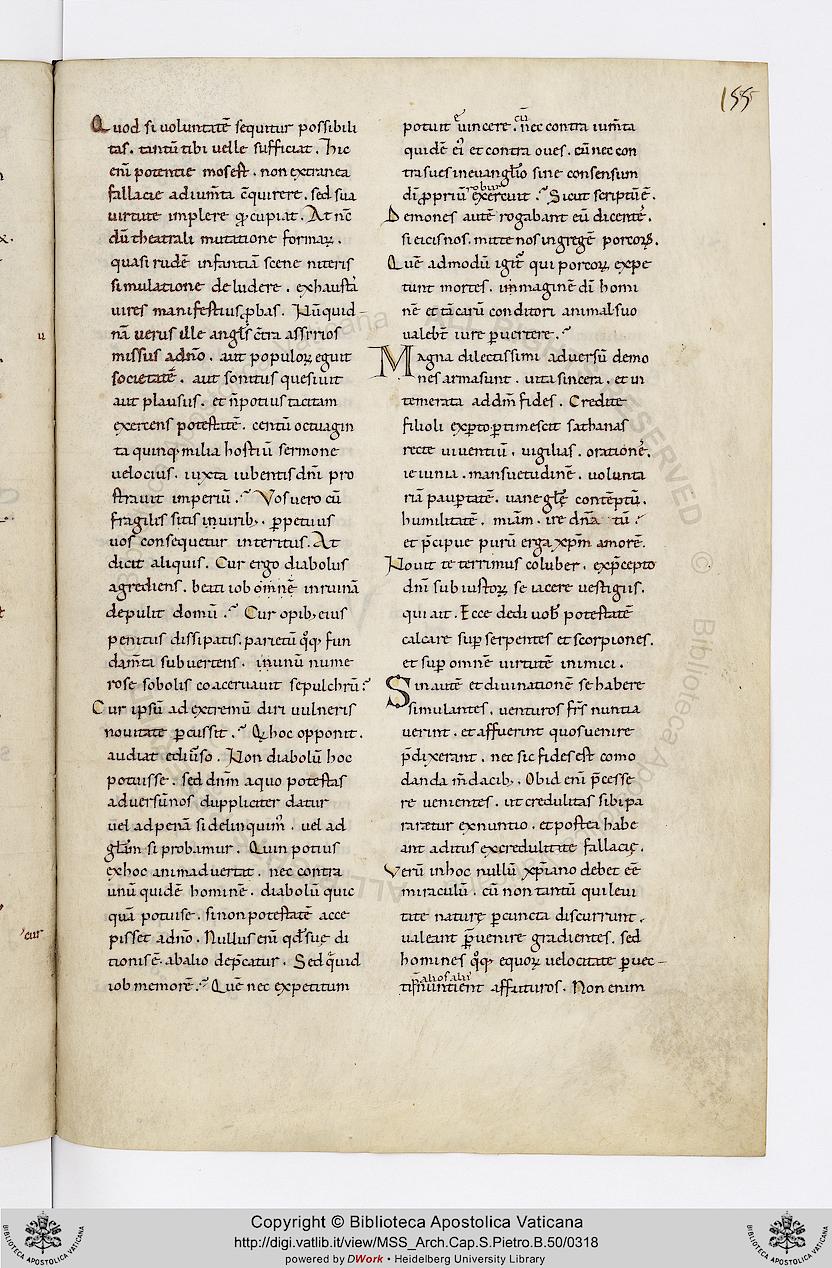 155
Quod si voluntatē sequitur possibili
tas. tantū tibi velle sufficiat. Hic
enī potentie mos est. non extranea
fallacie adiumta c̄quirere. sed sua
virtute implere q̄ cupiat. At nē
dū theatrali mutatione formaꝝ.
quasi rudē infantiā scene niteris
simulatione deludere. exhausta
vires manifestius ꝓbas. Nūquid
nā verus ille angl̄s c̄tra assirios
missus adn̄o. aut populoꝝ eguit
societatē. aut sonitus quesivit
aut plausus. et n̄ potius tacitam
exercens potestatē. centū octuagin
ta quinq; milia hostiū sermone
velocius. iuxta iubentis dn̄i pro
stravit imperiū. Vos vero cū
fragilis sitis in virib;. ꝑpetuus
vos consequetur interitus. At
dicit aliquis. Cur ergo diabolus
agrediens. beati iob omnē in ruinā
depulit domū. Cur opib; eius
penitus dissipatis. parietū q̄q; fun
dam̄ta subvertens. in unū nume
rose sobolis coacervavit sepulchrū.
Cur ipsū ad extremū diri vulneris
novitate ꝑcussit. Q hoc opponit.
audiat ediv̄so. Non diabolū hoc
potuisse. sed dn̄m a quo potestas
adversū nos duppliciter datur
vel ad penā si delinquim̄. vel ad
gl̄am si probamur. Quin potius
ex hoc animadvertat. nec contra
unū quidē hominē. diabolū quic
quā potuise. si non potestatē acce
pisset adn̄o. Nullus enī qd̄ sue di
tionis ē. ab alio dep̄catur. Sed quid
iob memorē. Quē nec expetitum
potuit evincere. cū nec contra ium̄ta
quidē ei et contra oves. cū nec con
tra sues in evangl̄io sine consensum
dī ꝓpriū robur exercuit. Sicut scriptū ē.
Demones autē rogabant eū dicentes.
si eicis nos. mitte nos in gregē porcoꝝ.
Quē admodū igit̄ qui porcoꝝ expe
tunt mortes. immaginē dī homi
nē et tā carū conditori animal suo
valebt̄ iure ꝑvertere.
Magna dilectissimi adversū demo
nes arma sunt. vita sincera. et in
temerata ad dm̄ fides. Credite
filioli exꝑto ꝑtimescit sathanas
recte viventiū. vigilias. orationes.
ieiunia. mansuetudinē. volunta
riā pauꝑtatē. vane gl̄e contēptū.
humilitatē. miam. ire dn̄a tū.
et p̄cipue purū erga xp̄m amorē.
Novit te terrimus coluber. ex p̄cepto
dn̄i sub iustoꝝ se iacere vestigiis.
qui ait. Ecce dedi vob̄ potestatē
calcare suꝑ serpentes et scorpiones.
et suꝑ omnē virtutē inimici.
Sin autē et divinationē se habere
simulantes. venturos fr̄s nuntia
verint. et affuerint quos venire
p̄dixerant. nec sic fides est como
danda m̄dacib;. Ob id enī p̄cesse
re venientes. ut credulitas sibi pa
raretur ex nuntio. et postea habe
ant aditus ex credulitate fallacie.
Verū in hoc nullū xp̄iano debet eē
miraculū. cū non tantū qui levi
tate nature ꝑ cuncta discurrunt.
valeant p̄venire gradientes. sed
homines q̄q; equoꝝ velocitate ꝑvec
ti p̄nuntient alios aliis affuturos. Non enim
u
cur
Copyright © Biblioteca Apostolica Vaticana
http://digi.vatlib.it/view/MSS_Arch.Cap.S.Pietro.B.50/0318
powered by DWork • Heidelberg University Library